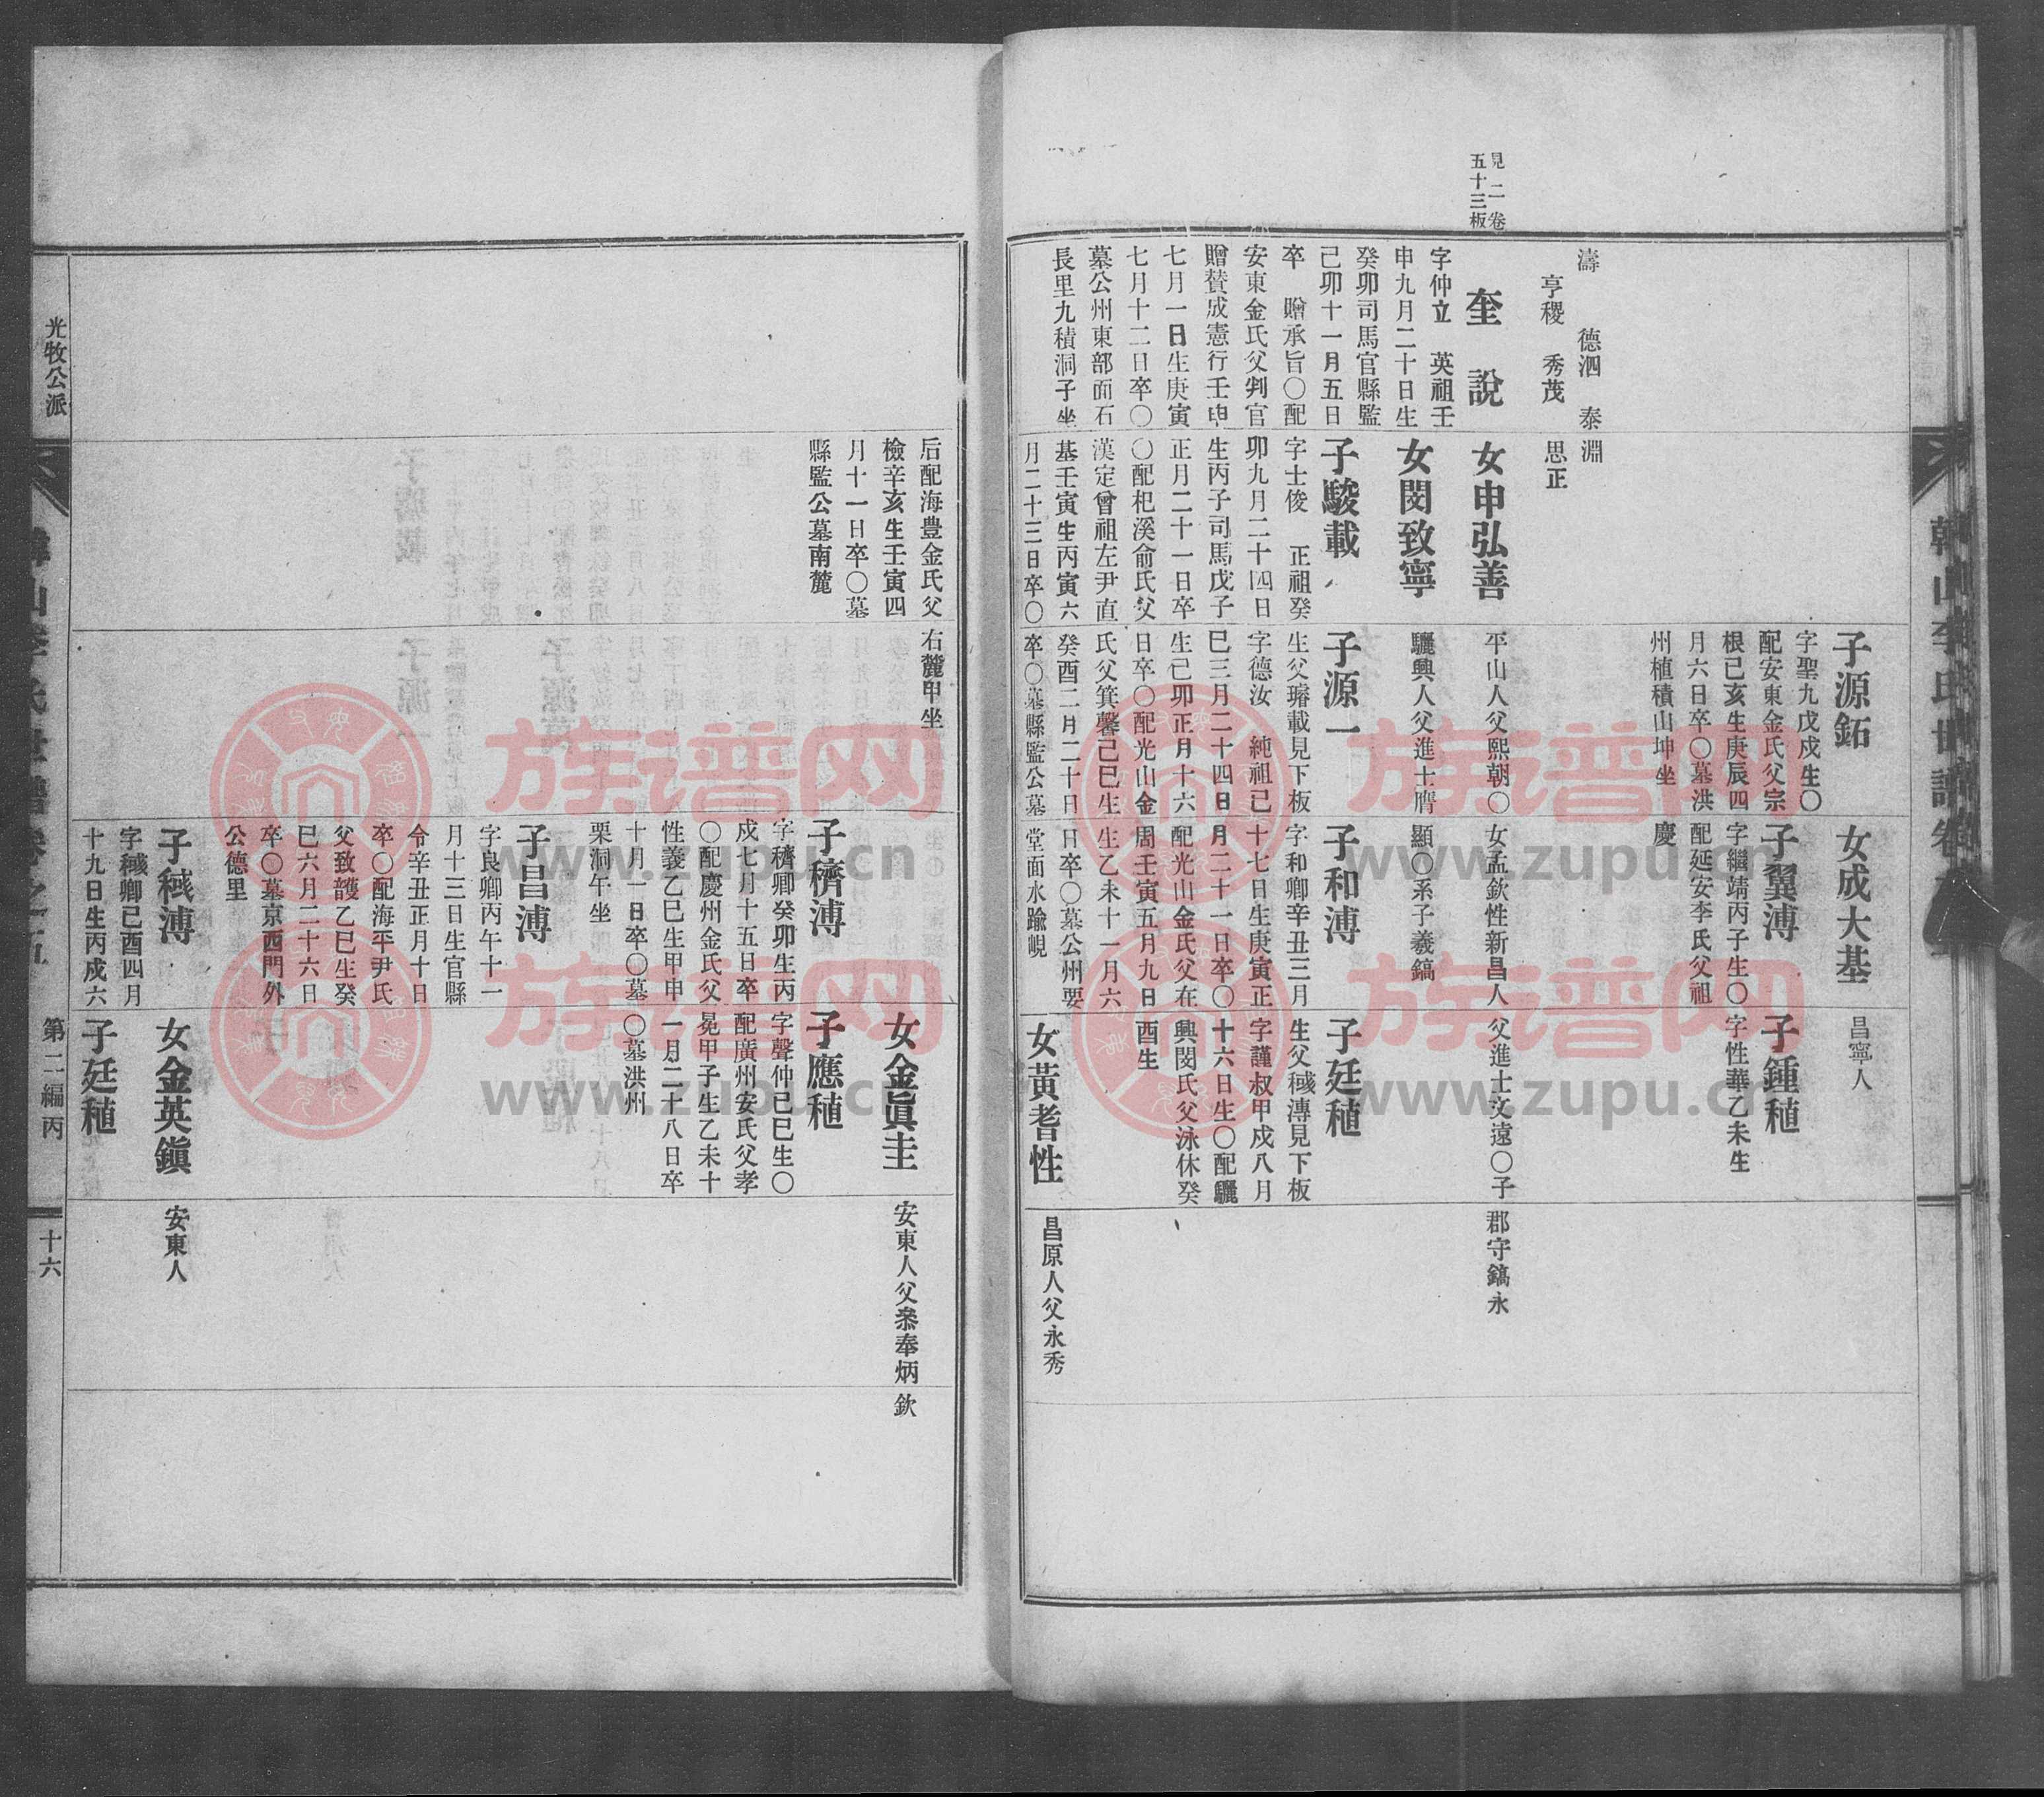 見二卷
五十三板
濤 德泗 泰淵
亨稷 秀茂 思正
奎說
字仲立 英祖壬
申九月二十日生
癸卯司馬官縣監
己卯十一月五日
卒 贈承旨〇配
安東金氏父判官
贈贊成憲行壬申
七月一日生庚寅
七月十二日卒〇
墓公州東部面石
長里九積洞子坐
女申弘善
女閔致寧
子駿載
字士俊 正祖癸
卯九月二十四日
生丙子司馬戊子
正月二十一日卒
〇配杞溪俞氏父
漢定曾祖左尹直
基壬寅生丙寅六
月二十三日卒〇
子源鉐
字聖九戊戌生〇
配安東金氏父宗
根已亥生庚辰四
月六日卒〇墓洪
州植積山坤坐
平山人父熙朝〇
驪興人父進士膺
子源一
生父璿載見下板
字德汝 純祖己
巳三月二十四日
生己卯正月十六
日卒〇配光山金
氏父箕馨己巳生
癸酉二月二十日
卒〇墓縣監公墓
女成大基
子翼溥
字繼靖丙子生〇
配延安李氏父祖
慶
女孟欽性新昌人
顯〇系子羲鎬
子和溥
字和卿辛丑三月
十七日生庚寅正
月二十一日卒〇
配光山金氏父在
周壬寅五月九日
生乙未十一月六
日卒〇墓公州要
堂面水踰峴
昌寧人
子鍾稙
字性華乙未生
父進士文遠〇子
子廷稙
生父稶溥見下板
字謹叔甲戌八月
十六日生〇配驪
興閔氏父泳休癸
酉生
女黃耆性
郡守鎬永
昌原人父永秀
后配海豊金氏父
檢辛亥生壬寅四
月十一日卒〇墓
縣監公墓南麓
右麓甲坐
子穧溥
字穧卿癸卯生丙
戌七月十五日卒
〇配慶州金氏父
性義乙巳生甲申
十月一日卒〇墓
栗洞午坐
子昌溥
字良卿丙午十一
月十三日生官縣
令辛丑正月十日
卒〇配海平尹氏
父致護乙巳生癸
巳六月二十六日
卒〇墓京西門外
公德里
子稶溥
字稶卿己酉四月
十九日生丙戌六
女金眞圭
子應稙
字聲仲己巳生〇
配廣州安氏父孝
冕甲子生乙未十
一月二十八日卒
〇墓洪州
女金英鎭
子廷稙
安東人父叅奉炳
欽
安東人
光牧公派
第二編丙
十六
族谱网
www.zupu.cn
族谱网
www.zupu.cn
族谱网
www.zupu.cn
族谱网
www.zupu.cn